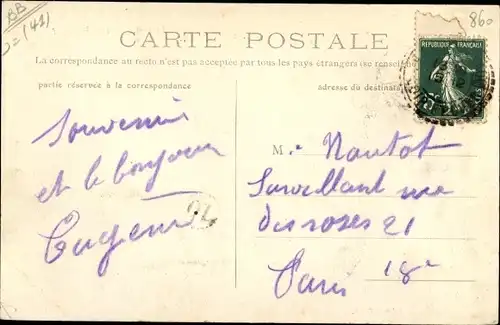 BB
860
CARTE POSTALE
REPUBLIQUE FRANÇAISE
La correspondance au recto n'est pas acceptée par tous les pays étrangers (se renseigner
partie réservée à la correspondance
adresse du destinataire
Souvenir
et le bonjour
Eugène
M. Nautot
Surveillant rue
des roses 21
Paris 18e